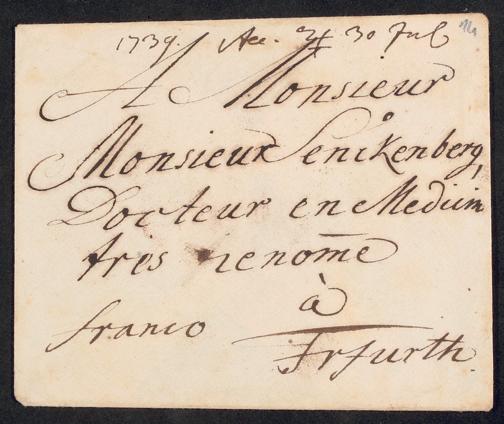 1739. Acc. 30 Jul
A Monsieur
Monsieur Senckenberg
Docteur en Medicin
tres renom̄e
à
franco Frfurth